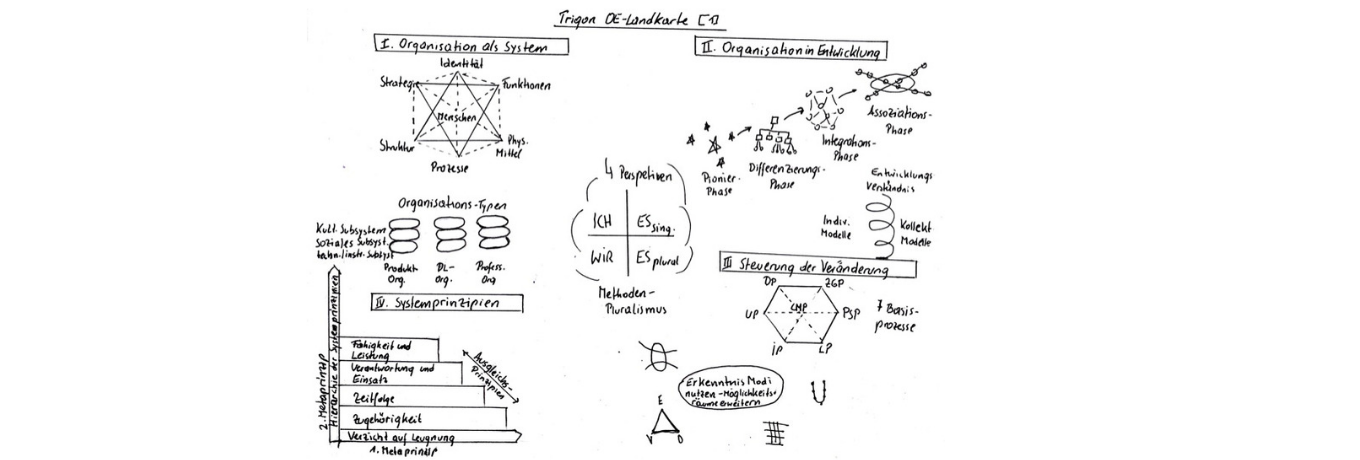 Trigon OE-Landkarte [1]
I. Organisation als System
Identität
Strategie
Funktionen
Menschen
Struktur
Phys.
Mittel
Prozesse
Organisations-Typen
Kult. Subsystem
Soziales Subsyst.
techn.instr. Subsyst
Produkt
Org.
DL-
Org.
Profess.
Org
II. Organisation in Entwicklung
Pionier-
Phase
Differenzierungs-
Phase
Integrations-
Phase
Assoziations-
Phase
Entwicklungs
Verständnis
Indiv.
Modelle
Kollekt
Modelle
4 Perspetiven
ICH
ES sing.
WiR
ES plural
Methoden-
Pluralismus
III Steuerung der Veränderung
DP
ZGP
UP
CMP
PSP
IP
LP
7 Basis-
prozesse
IV. Systemprinzipien
2. Metaprinzip
Hierarchie der Systemprinzipien
Fähigkeit und
Leistung
Verantwortung und
Einsatz
Zeitfolge
Zugehörigkeit
Verzicht auf Leugnung
1. Metaprinzip
Ausgleichs-
Prinzipien
Erkenntnis Modi
nutzen - Möglichkeits-
räume erweitern
E
V
D